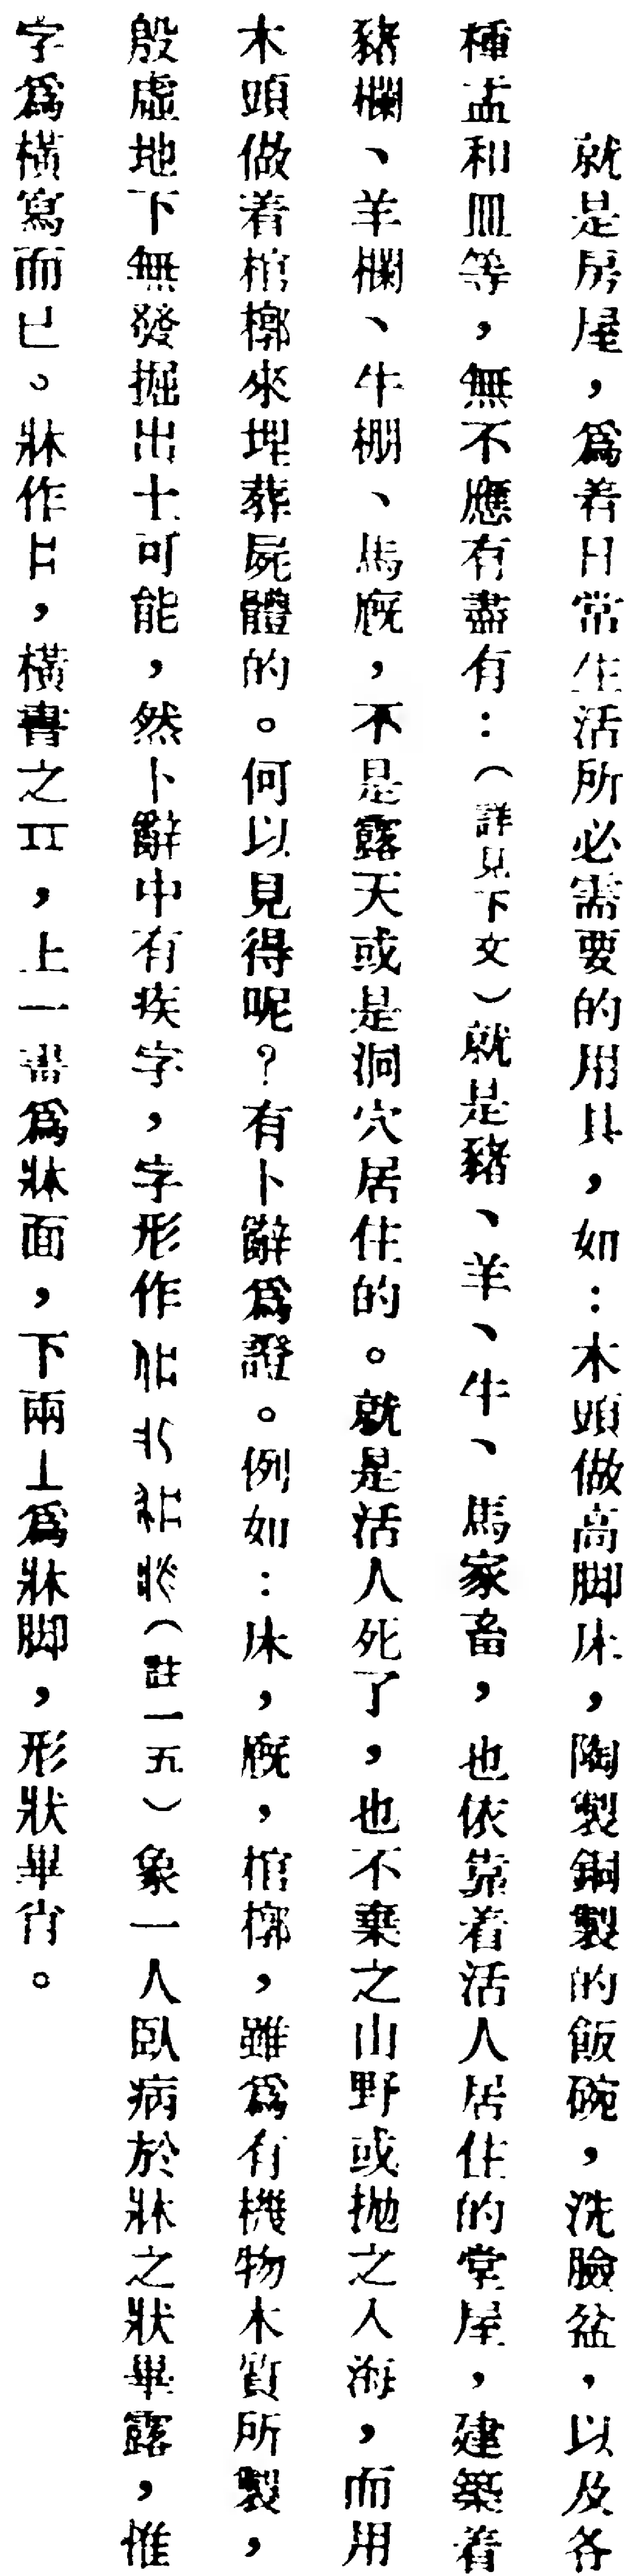 就是房屋，爲着日常生活所必需要的用具，如：木頭做高脚床，陶製銅製的飯碗，洗臉盆，以及各
種盂和皿等，無不應有盡有：（詳見下文）就是豬、羊、牛、馬家畜，也依靠着活人居住的堂屋，建築着
豬欄、羊欄、牛棚、馬廐，不是露天或是洞穴居住的。就是活人死了，也不棄之山野或拋之人海，而用
木頭做着棺槨來埋葬屍體的。何以見得呢？有卜辭爲證。例如：床，廐，棺槨，雖爲有機物木質所製，
殷虛地下無發掘出土可能，然卜辭中有疾字，字形作（註一五）象一人臥病於牀之狀畢露，惟
字爲橫寫而已。牀作，橫書之，上一畫爲牀面，下兩丄爲牀脚，形狀畢肖。